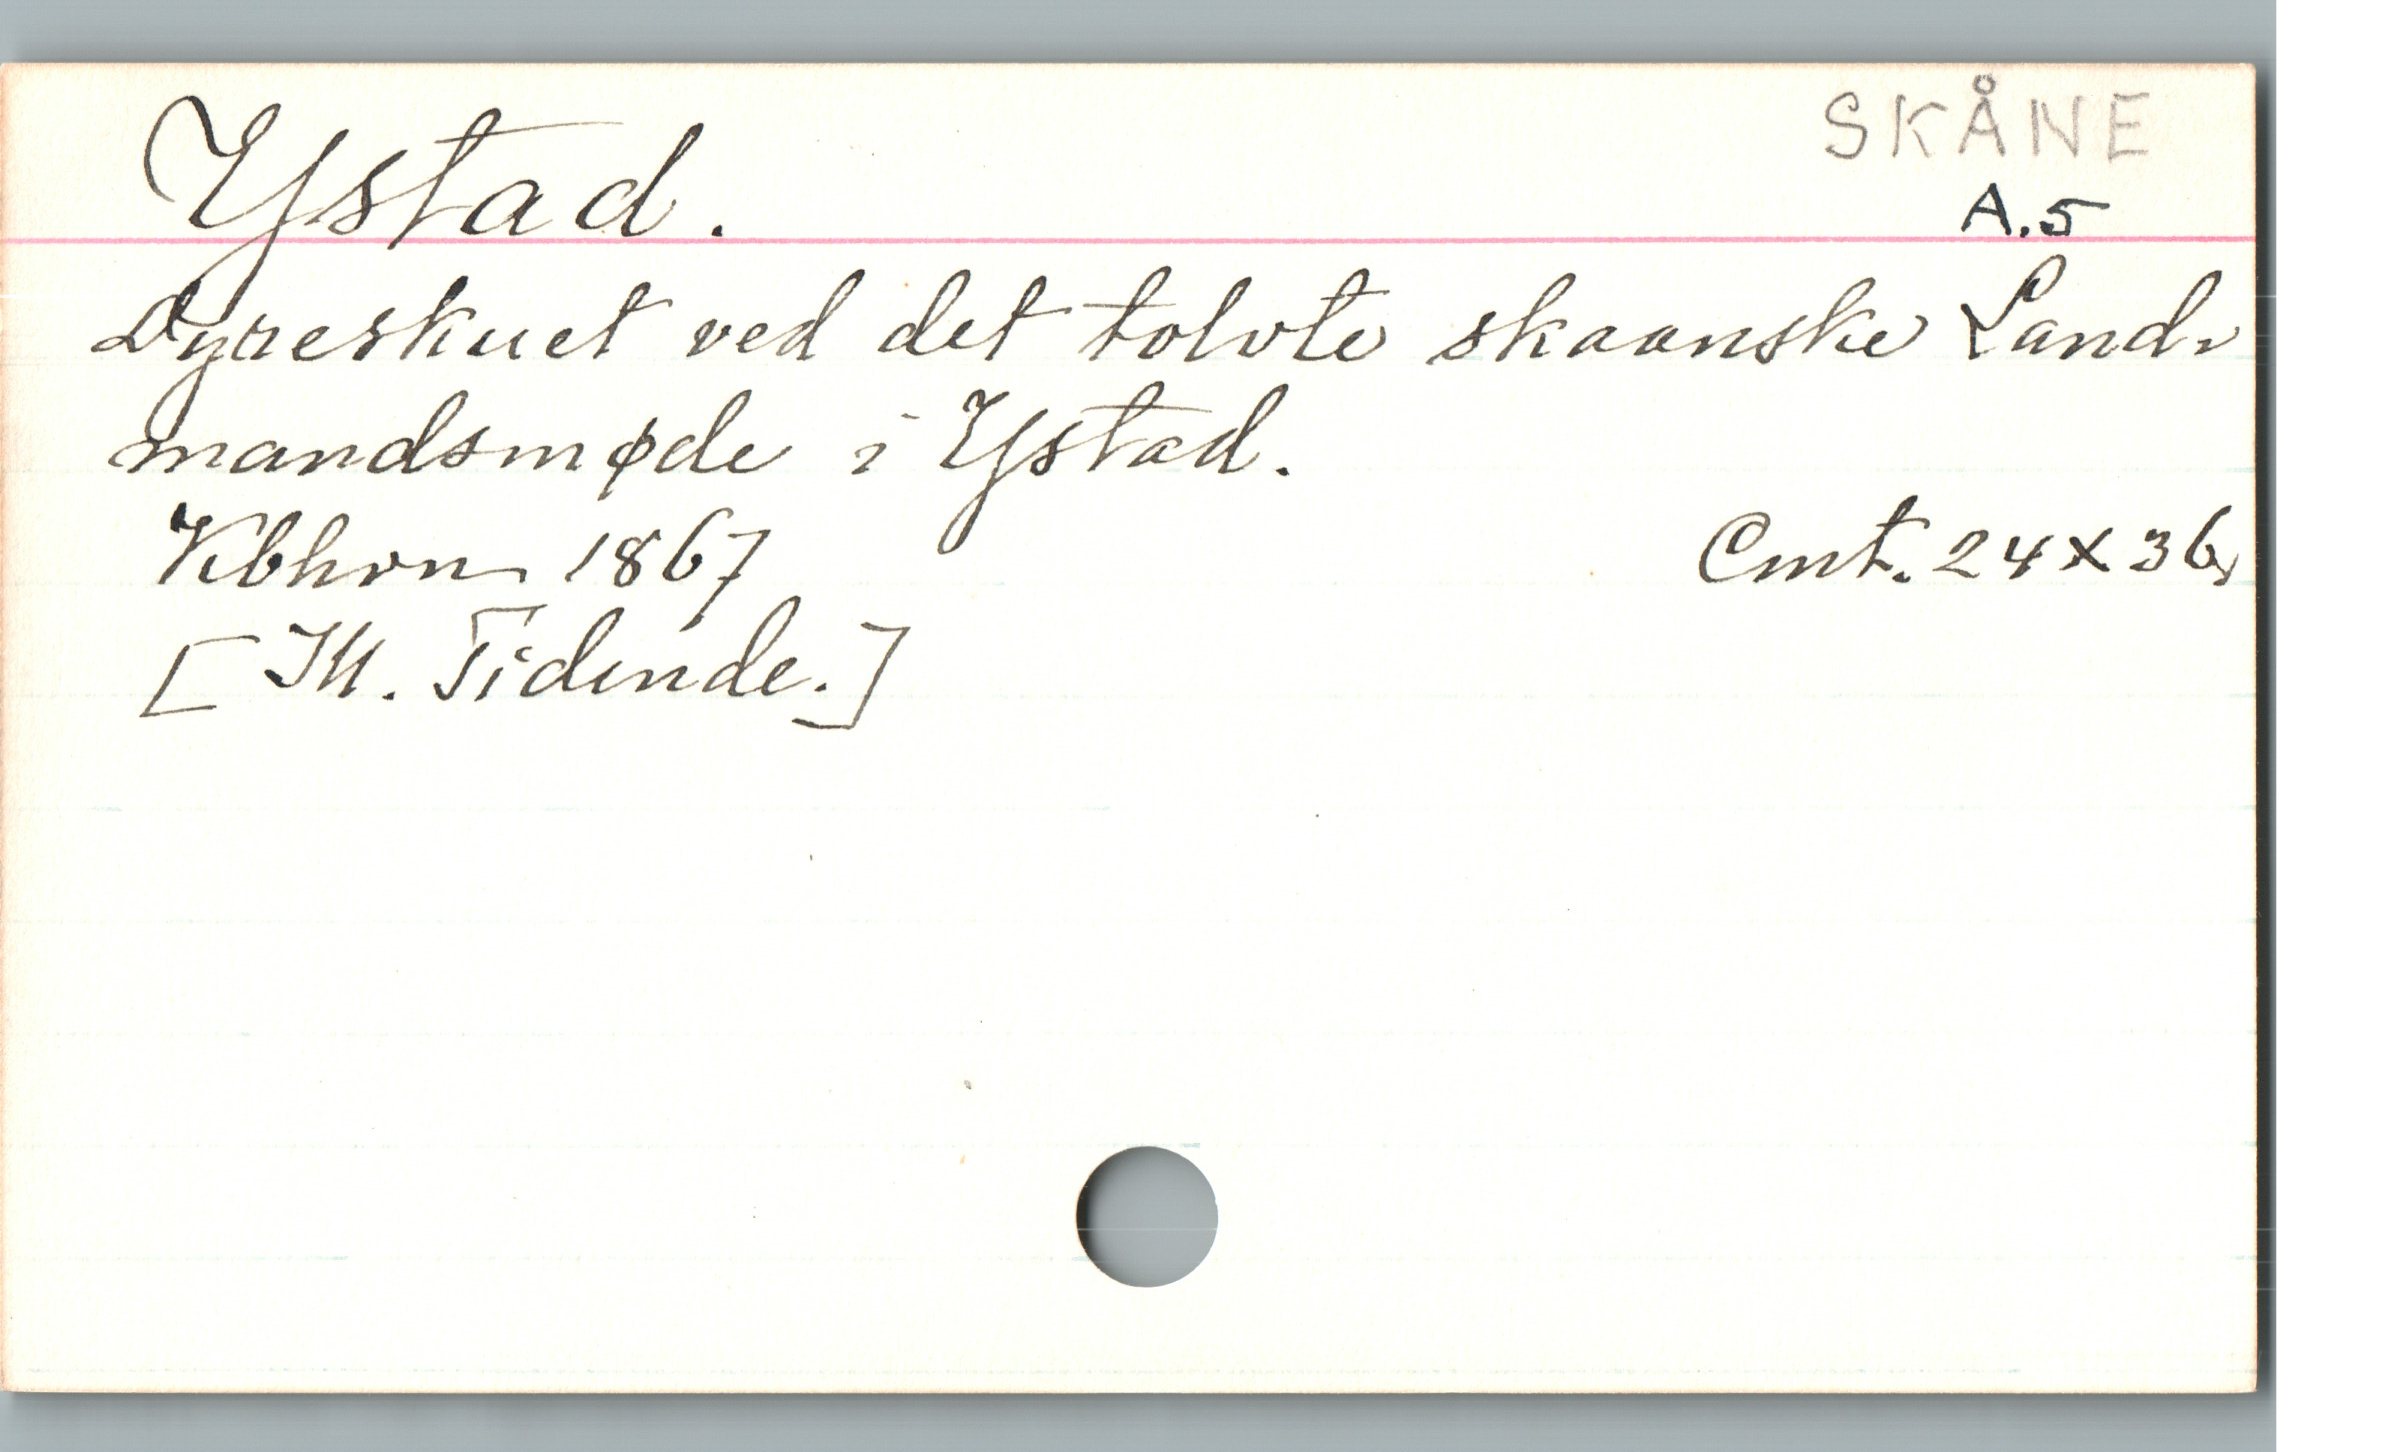 SKÅNE
Ystad.
A.5
Dyreskuet ved det tolvte skaanske Land-
mandsmøde i Ystad.
Kbhvn 1867
Cmt. 24 x 36,
[Ill. Tidende.]